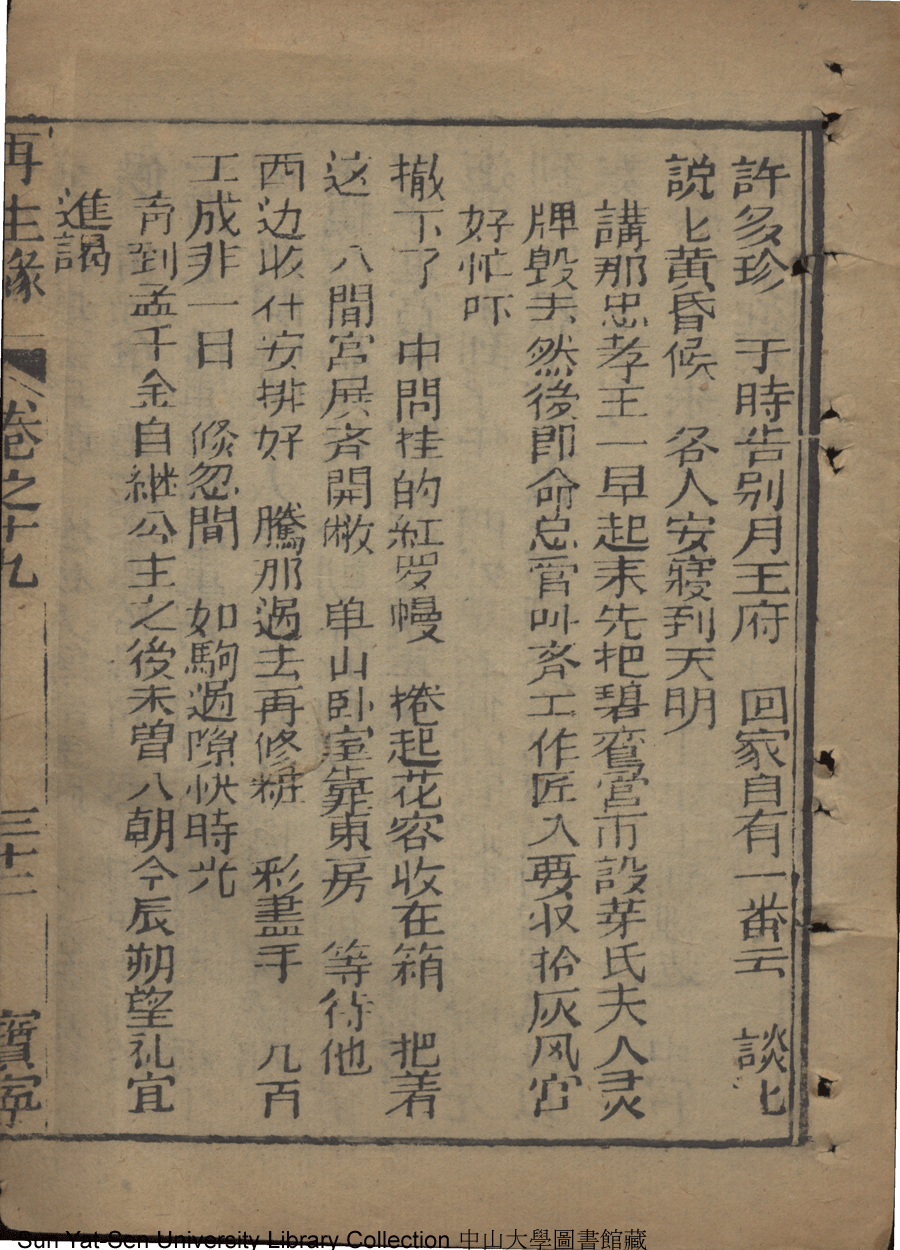 許多珍　于時告别月王府　回家自有一番云　談匕
説匕黄昏候　各人安寢到天明
講那忠孝王一早起末先把碧鸞宫中設芽氏夫人灵
牌毁去然後即命总管叫齐工作匠入要収拾灰风宫
好忙吓
撤下了　中間挂的紅罗幔　捲起花容收在箱　把着
这　八間宫展斉開敝　单山卧室靠東房　等待他
西边收什安排好　騰那過去再修粧　彩畫手　几百
工成非一日　倐忽間　如駒過隙快時光
斉到孟千金自継公主之後未曽八朝今辰朔望礼宜
進謁
再生緣　卷之十九　三十二　寶寧
Sun Yat-Sen University Library Collection 中山大學圖書館藏